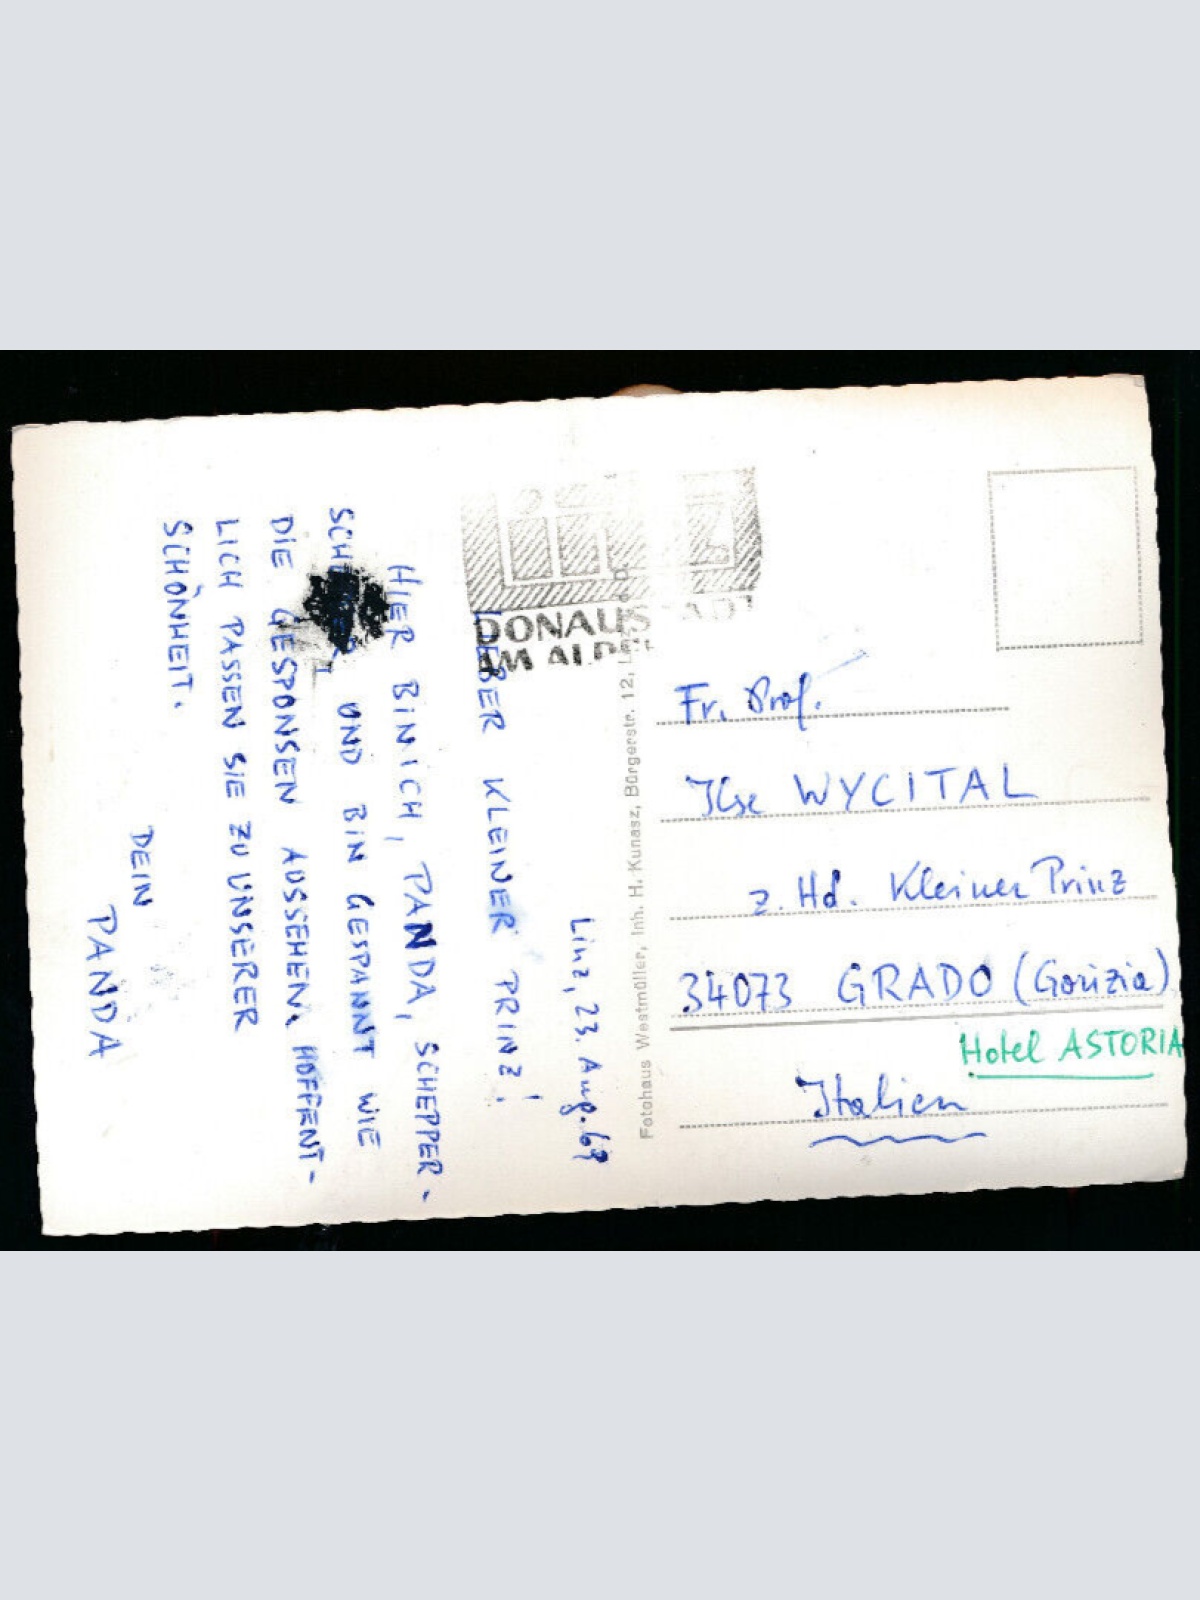 Linz, 23. Aug. 69
LIEBER KLEINER PRINZ!
HIER BIN ICH, PANDA, SCHEPPER-
UND BIN GESPANNT WIE
DIE GESPONSEN AUSSEHEN. HOFFENT-
LICH PASSEN SIE ZU UNSERER
SCHÖNHEIT.
DEIN
PANDA
DONAUSTADT
AM
Fotohaus Westmüller, Inh. H. Kunasz, Bürgerstr. 12,
Fr. Prof.
Ilse WYCITAL
z. Hd. Kleiner Prinz
34073 GRADO (Gorizia)
Hotel ASTORIA
Italien